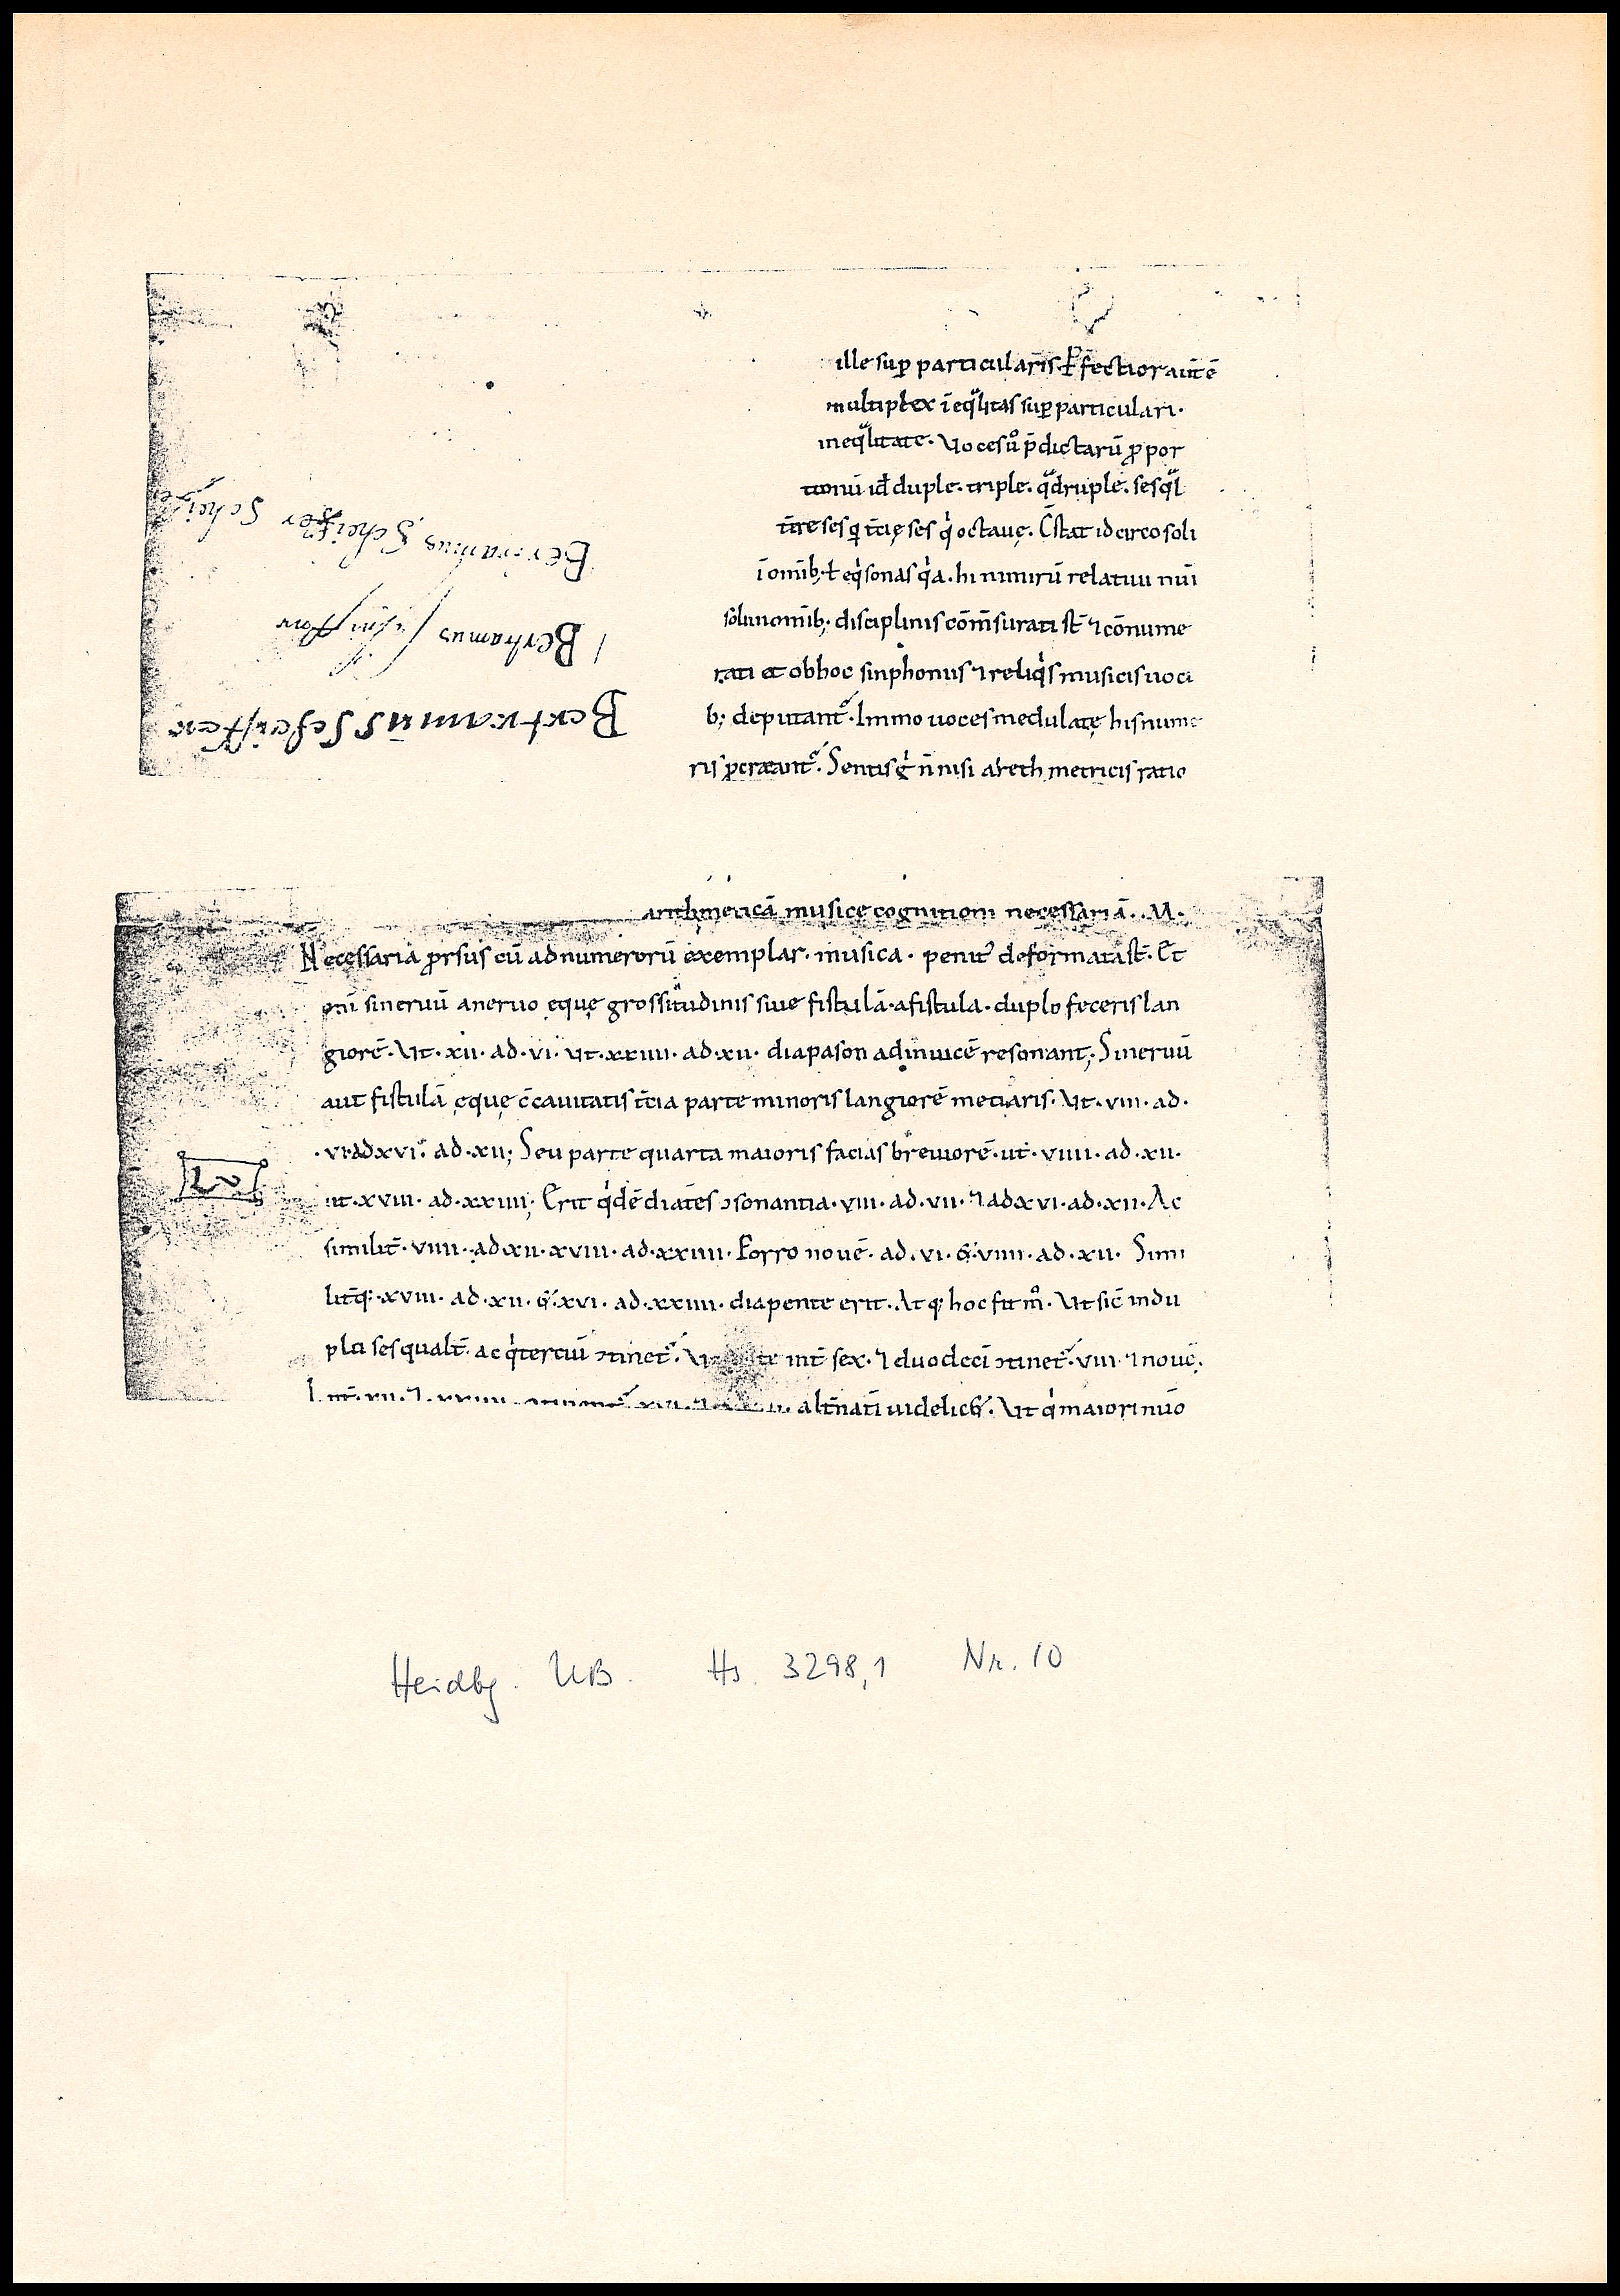 ille sup̄ particularis ꝑfectior aut̄ ē
multiplex ī eq̄litas sup̄ particulari·
ineq̄litate· Voces ů p̄dictarū ꝓpor
tionū id̄ duple· triple· q̄druple· sesq̄l
t̄re sesq̄ t̄cię sesq̇ octauę· C̄stat idcirco soli
ī om̄ib;· ł eq̇sonas q̇a· hi nimirū relatiui nūi
soli in om̄ib; disciplinis cōm̄surati st̄ ⁊ cōnume
rati et ob hoc sinphonus ⁊ reliq̇s musicis uoci
b; deputant᷑· Immo uoces medulatę his nume
ris ꝓcreant᷑· Sentis ġ n̄ nisi arethmetricis ratio
Bertramus Scheiffer Schei
Bertramus
Bertramus scheiffer
arithmeticā musice cognitioni necessariā· M·
Necessaria ꝓrsus cū ad numerorū exemplar· musica· penit᷒ deformata st̄· Et
eni si neruū a neruo ęquę grossitudinis siue fistulā· a fistula· duplo feceris lan
giorē· Vt· xii· ad· vi· ut· xxiiii· ad· xii· diapason ad inuicē resonant; Si neruū
aut fistulā ęquę c̄cauitatis t̄cia parte minoris langiorē metiaris· Vt· viii· ad·
·vi· ad xvi· ad· xii; Seu parte quarta maioris facias breuiorē· ut· viiii· ad· xii·
ut· xviii· ad· xxiiii; Erit q̇dē diates̄ ɔsonantia· viii· ad· vii· ⁊ ad xvi· ad· xii· Ac
similit̄· viiii· ad xii· xviii· ad· xxiiii· Porro nouē· ad· vi· & viiii· ad· xii· Simi
lit̄q;· xviii· ad· xii· & xvi· ad· xxiiii· diapente erit· Atq; hoc fit m̊· Vt sic̄ in du
pla sesqualt̄· ac q̇tertiū ɔtinet᷑· int̄ sex· ⁊ duodeci ɔtinet᷑· viii· ⁊ nouē·
int̄· xii· ⁊ xxiiii· alt̄nati uidelic&· Vt q̇ maiori nūo
Heidbg. UB. Hs. 3298,1 Nr. 10